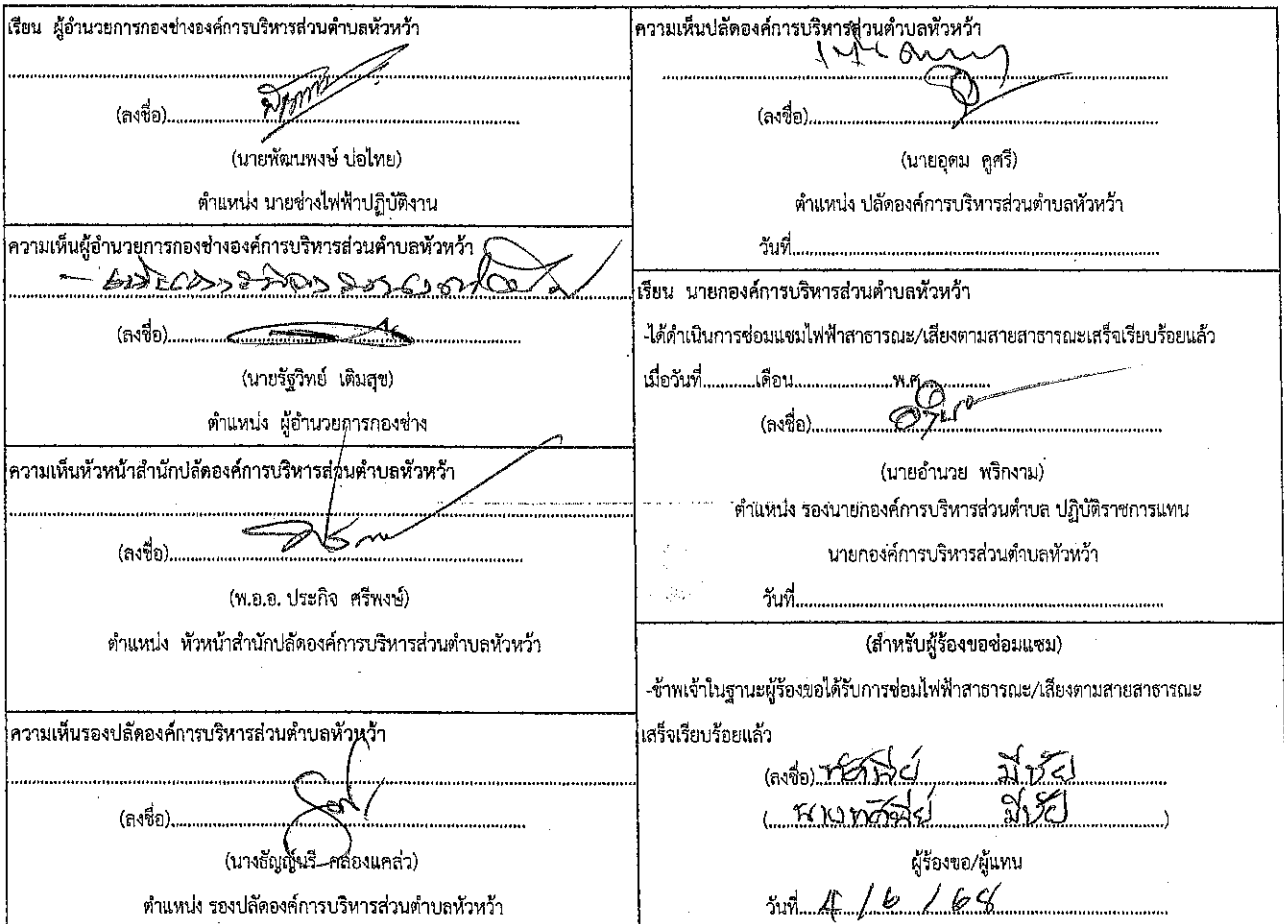 เรียน ผู้อำนวยการกองช่างองค์การบริหารส่วนตำบลหัวหว้า
(ลงชื่อ)
(นายพัฒนพงษ์ บ่อไทย)
ตำแหน่ง นายช่างไฟฟ้าปฏิบัติงาน
ความเห็นผู้อำนวยการกองช่างองค์การบริหารส่วนตำบลหัวหว้า
(ลงชื่อ)
(นายรัฐวิทย์ เติมสุข)
ตำแหน่ง ผู้อำนวยการกองช่าง
ความเห็นหัวหน้าสำนักปลัดองค์การบริหารส่วนตำบลหัวหว้า
(ลงชื่อ)
(พ.อ.อ. ประกิจ ศรีพงษ์)
ตำแหน่ง หัวหน้าสำนักปลัดองค์การบริหารส่วนตำบลหัวหว้า
ความเห็นรองปลัดองค์การบริหารส่วนตำบลหัวหว้า
(ลงชื่อ)
(นางธัญญ์นรี คล่องแคล่ว)
ตำแหน่ง รองปลัดองค์การบริหารส่วนตำบลหัวหว้า
ความเห็นปลัดองค์การบริหารส่วนตำบลหัวหว้า
(ลงชื่อ)
(นายอุดม คูศรี)
ตำแหน่ง ปลัดองค์การบริหารส่วนตำบลหัวหว้า
วันที่
เรียน นายกองค์การบริหารส่วนตำบลหัวหว้า
-ได้ดำเนินการซ่อมแซมไฟฟ้าสาธารณะ/เสียงตามสายสาธารณะเสร็จเรียบร้อยแล้ว
เมื่อวันที่............เดือน......................พ.ศ.
(ลงชื่อ)
(นายอำนวย พริกงาม)
ตำแหน่ง รองนายกองค์การบริหารส่วนตำบล ปฏิบัติราชการแทน
นายกองค์การบริหารส่วนตำบลหัวหว้า
วันที่
(สำหรับผู้ร้องขอซ่อมแซม)
-ข้าพเจ้าในฐานะผู้ร้องขอได้รับการซ่อมไฟฟ้าสาธารณะ/เสียงตามสายสาธารณะ
เสร็จเรียบร้อยแล้ว
(ลงชื่อ) มีชัย
( มีชัย )
ผู้ร้องขอ/ผู้แทน
วันที่ 4 / 6 / 68